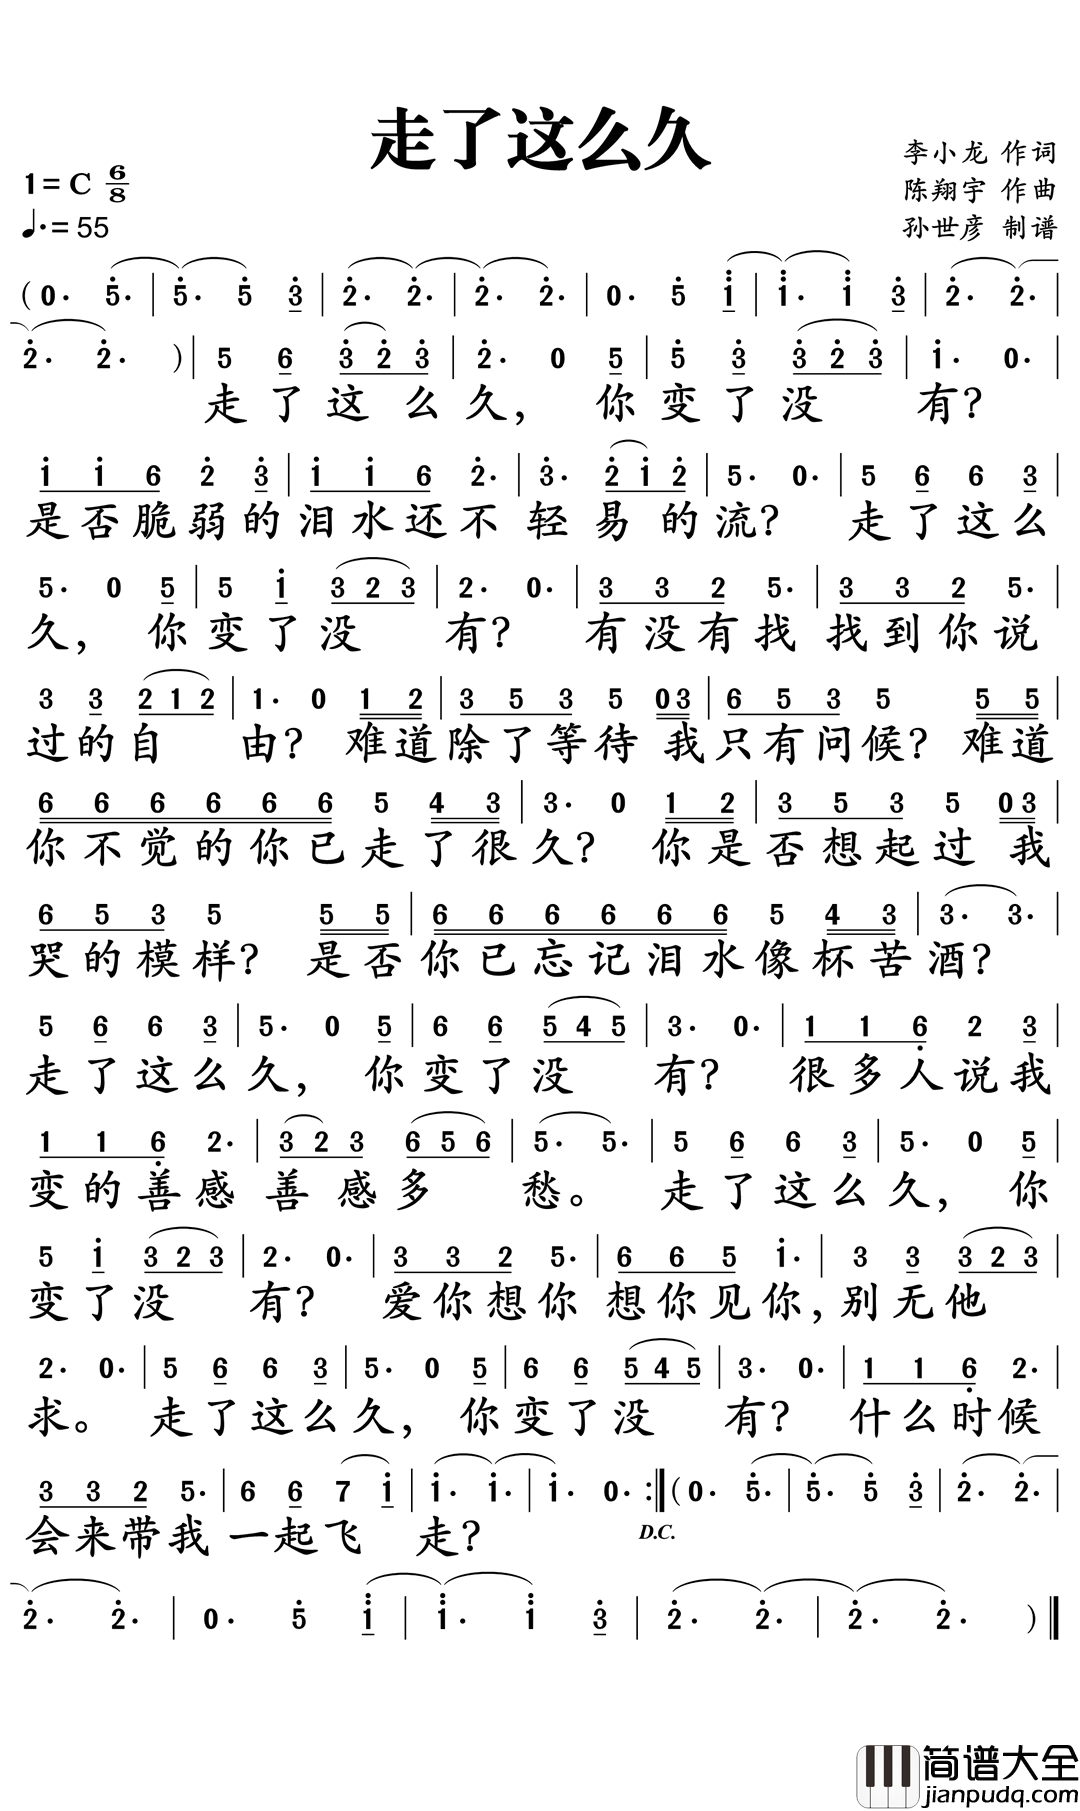 走了这么久
李小龙 作词
1=C 6/8
陈翔宇 作曲
♩.=55
孙世彦 制谱
(0. 5. | 5. 5 3 | 2. 2. | 2. 2. | 0. 5 1 | 1. 1 3 | 2. 2. |
2. 2. )| 5 6 3 2 3 | 2. 0 5 | 5 3 3 2 3 | 1. 0. |
走了这么久，你变了没有？
1 1 6 2 3 | 1 1 6 2. | 3. 2 1 2 | 5. 0. | 5 6 6 3 |
是否脆弱的泪水还不轻易的流？走了这么
5. 0 5 | 5 1 3 2 3 | 2. 0. | 3 3 2 5. | 3 3 2 5. |
久，你变了没有？有没有找找到你说
3 3 2 1 2 | 1. 0 1 2 | 3 5 3 5 0 3 | 6 5 3 5 5 5 |
过的自由？难道除了等待我只有问候？难道
6 6 6 6 6 6 5 4 3 | 3. 0 1 2 | 3 5 3 5 0 3 |
你不觉的你已走了很久？你是否想起过我
6 5 3 5 5 5 | 6 6 6 6 6 6 5 4 3 | 3. 3. |
哭的模样？是否你已忘记泪水像杯苦酒？
5 6 6 3 | 5. 0 5 | 6 6 5 4 5 | 3. 0. | 1 1 6 2 3 |
走了这么久，你变了没有？很多人说我
1 1 6 2. | 3 2 3 6 5 6 | 5. 5. | 5 6 6 3 | 5. 0 5 |
变的善感善感多愁。走了这么久，你
5 1 3 2 3 | 2. 0. | 3 3 2 5. | 6 6 5 1. | 3 3 3 2 3 |
变了没有？爱你想你想你见你，别无他
2. 0. | 5 6 6 3 | 5. 0 5 | 6 6 5 4 5 | 3. 0. | 1 1 6 2. |
求。走了这么久，你变了没有？什么时候
3 3 2 5. | 6 6 7 1 | 1. 1. | 1. 0. :‖(0. 5. | 5. 5 3 | 2. 2. |
会来带我一起飞走？
D.C.
2. 2. | 0. 5 1 | 1. 1 3 | 2. 2. | 2. 2. )‖
简谱大全
jianpudq.com